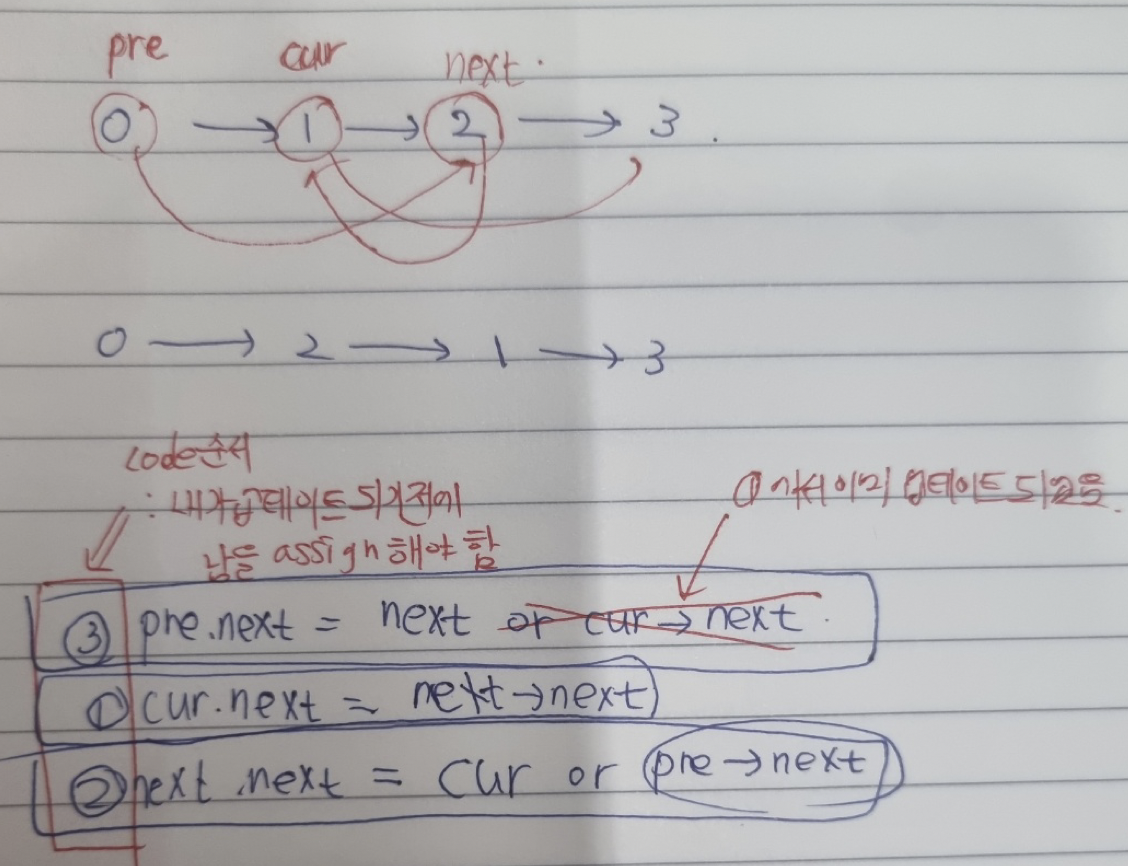 pre cur next.
0 → 1 → 2 → 3.
0 → 2 → 1 → 3
code순서
: 내가 업데이트 되기전에
남을 assign 해야 함
①에서 이미 업데이트 되었음.
③ pre.next = next or cur → next.
① cur.next = next → next
② next.next = cur or pre → next